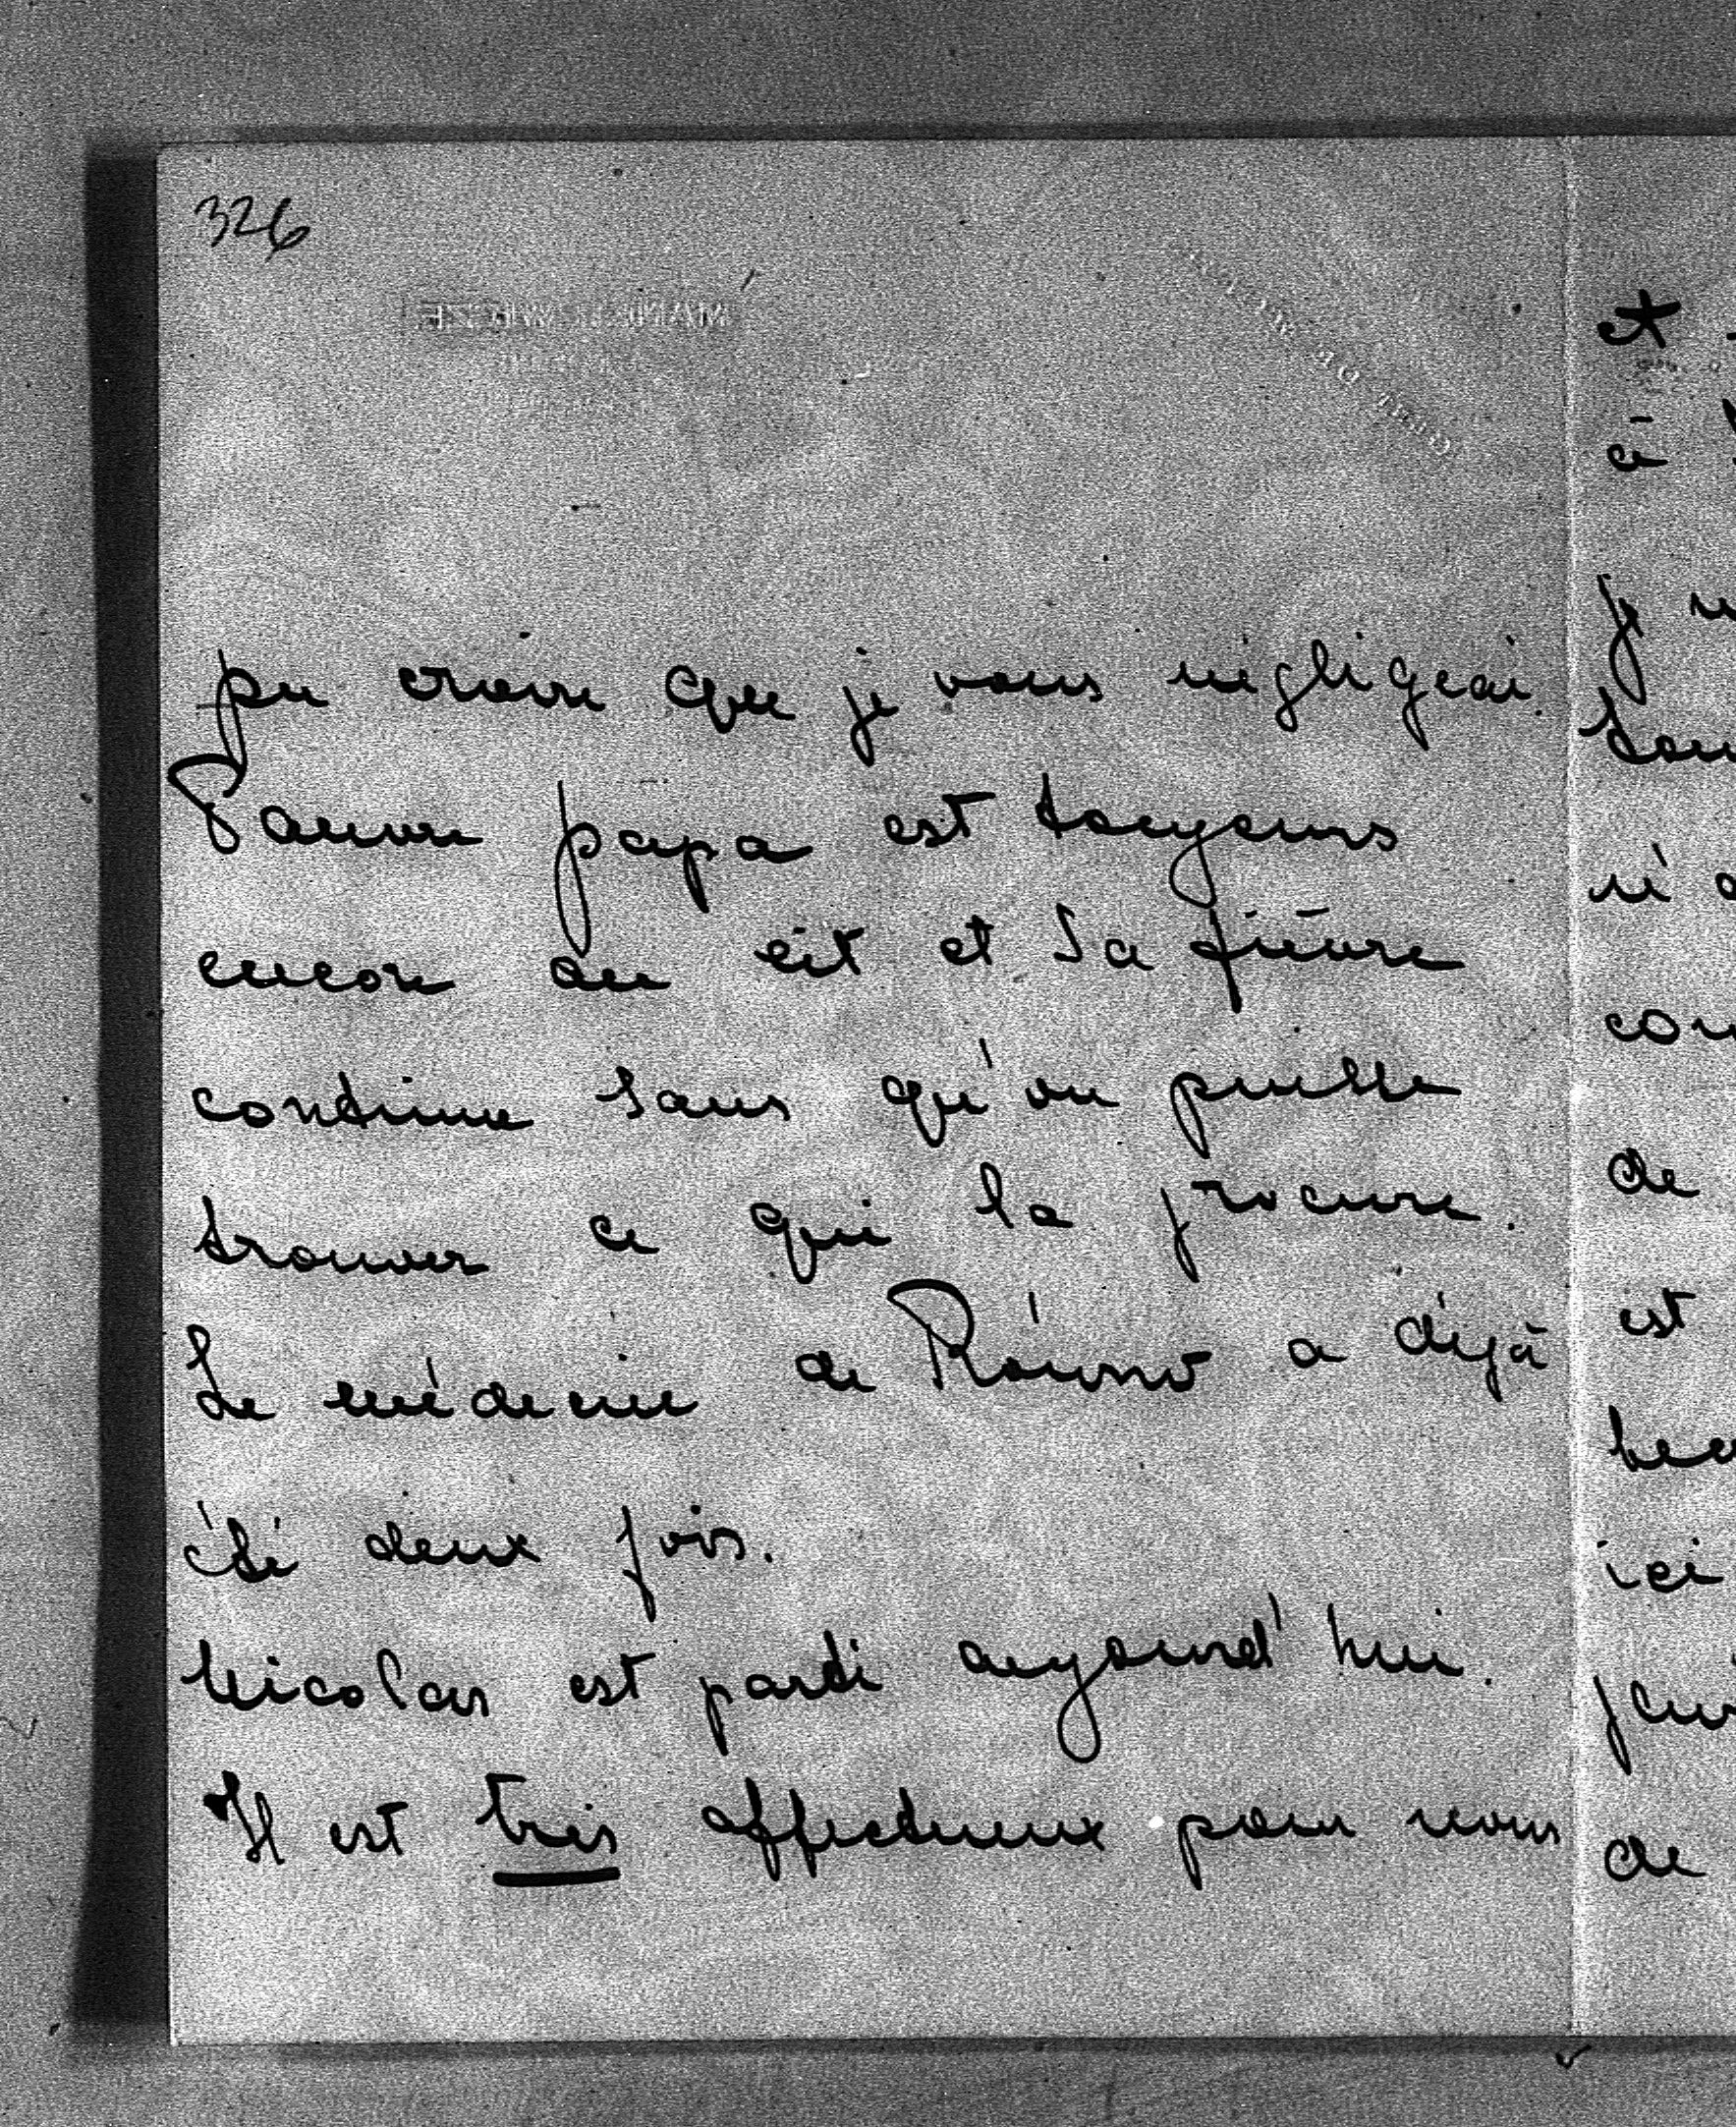 326
pu croire que je vous négligeai.
Pauvre papa est toujours
encore au lit et sa fièvre
continue sans qu'on puisse
trouver ce qui la procure.
Le médecin de Równo a déjà
été deux fois.
Nicolas est parti aujourd'hui.
Il est très affectueux pour nous
et
à
je
ici
de
est
de